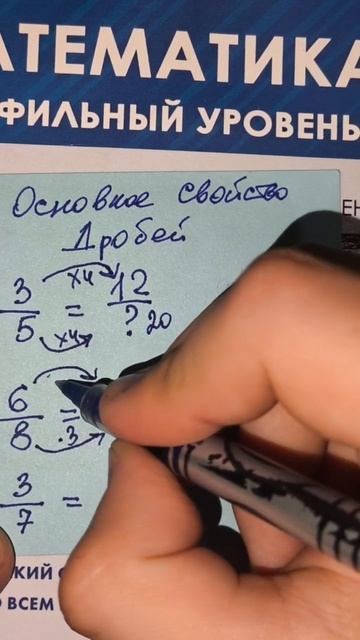 АТЕМАТИКА
ФИЛЬНЫЙ УРОВЕНЬ
ЕН
Основное свойство
Дробей
3/5 = 12/? 20
x4
x4
6/8 =
.3
3/7 =
КИЙ
ВСЕМ